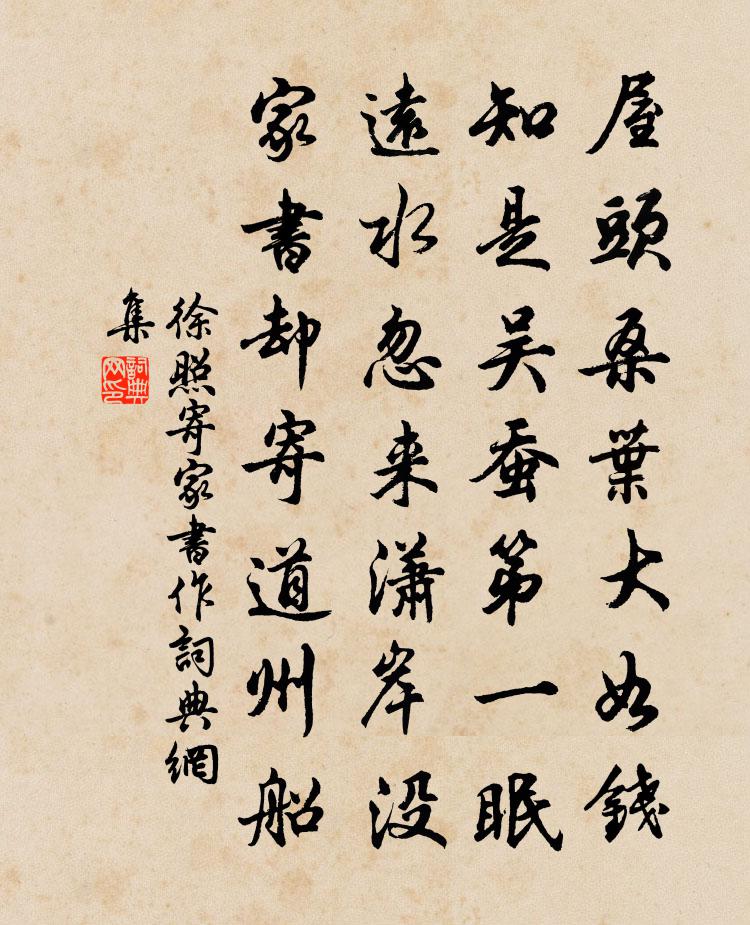 屋頭桑葉大如錢
知是吴蚕第一眠
遠水忽来潇岸没
家書却寄道州船
徐照寄家書作詞典網
集
詞典
网印